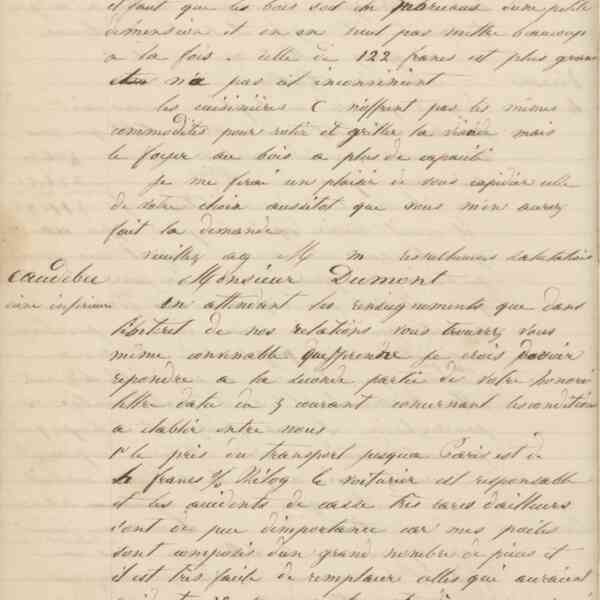 il faut que les bois soit en morceaux dune petite
dimension et on en peut pas mettre beaucoup
a la fois. celle de 122 francs est plus grande
et n'a pas cet inconvenient
les cuisinières C n'offrent pas les mêmes
commodités pour rotir et griller la viande mais
le foyer au bois a plus de capacité
Je me ferai un plaisir de vous expédier celle
de votre choix aussitot que vous m'en aurez
fait la demande
veuillez ag M m respectueuses salutations
Caudebec Monsieur Dumont
seine inferieure en attendant les renseignements que dans
l'intéret de nos relations vous trouverez vous
même convenable de prendre je crois devoir
repondre a la seconde partie de votre honoré
lettre date du 3 courant concernant les condition
a etablir entre nous
1° le prix du transport jusqua Paris est de
francs % kilog le voiturier est responsable
et les accidents de casse très rares dailleurs
sont de peu dimportance car mes poêles
sont composés d'un grand nombre de pieces et
il est très facile de remplacer celles qui auraient